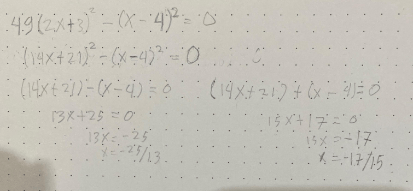 49(2x+3)² - (x-4)² = 0
(14x+21)² - (x-4)² = 0
(14x+21) - (x-4) = 0 (14x+21) + (x-4) = 0
13x+25 = 0 15x+17 = 0
13x = -25 15x = -17
x = -25/13 x = -17/15